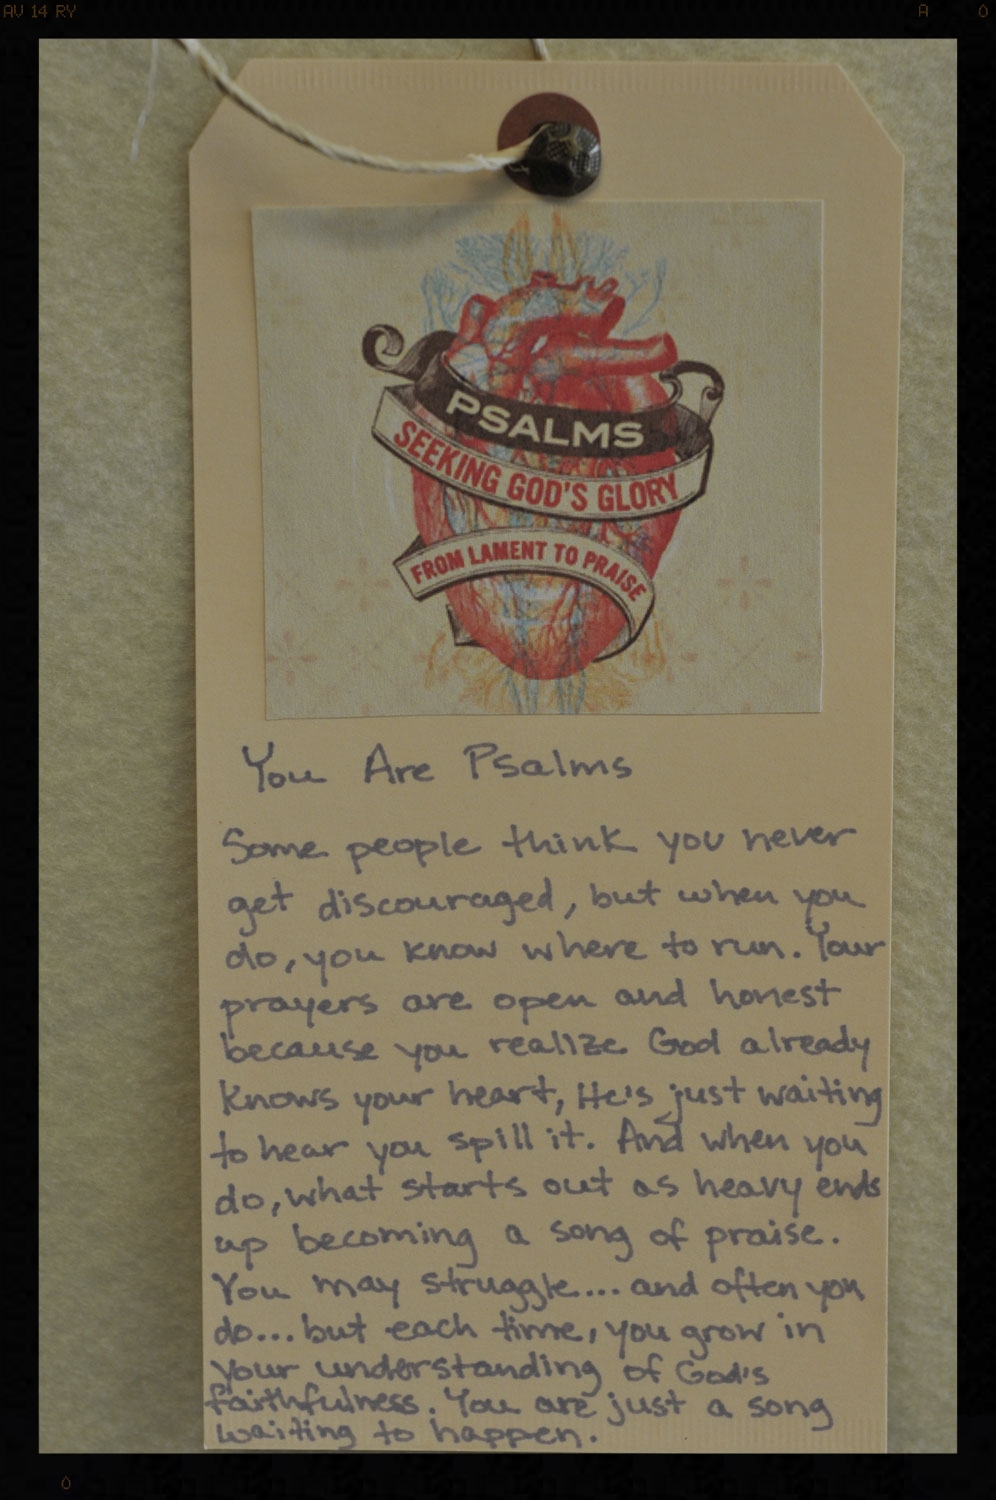 AV 14 RY
A
0
PSALMS
SEEKING GOD'S GLORY
FROM LAMENT TO PRAISE
You Are Psalms
Some people think you never
get discouraged, but when you
do, you know where to run. Your
prayers are open and honest
because you realize God already
knows your heart, He's just waiting
to hear you spill it. And when you
do, what starts out as heavy ends
up becoming a song of praise.
You may struggle... and often you
do... but each time, you grow in
your understanding of God's
faithfulness. You are just a song
waiting to happen.
0